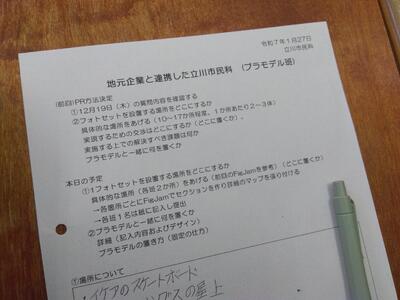 令和7年1月27日
立川市民科
地元企業と連携した立川市民科　(プラモデル班)
(前回)PR方法決定
①12月19日(木)の質問内容を確認する
②フォトセットを設置する場所をどこにするか
具体的な場所をあげる(10～17か所程度、1か所あたり2～3体)
実現するための交渉はどこにするか(どこに置くか)、
実施する上での解決すべき課題は何か
プラモデルと一緒に何を置くか
本日の予定
①1フォトセットを設置する場所をどこにするか
具体的な場所(各班2か所)をあげる(前回のFigJamを参考)(どこに置くか)
→各箇所ごとにFigJamでセクションを作り詳細のマップを張り付ける
→各班1名は紙に記入し提出
②プラモデルと一緒に何を置くか
詳細(記入内容およびデザイン)
プラモデルの置き方(固定の仕方)
①場所について
・イケアのスケートボード
の屋上